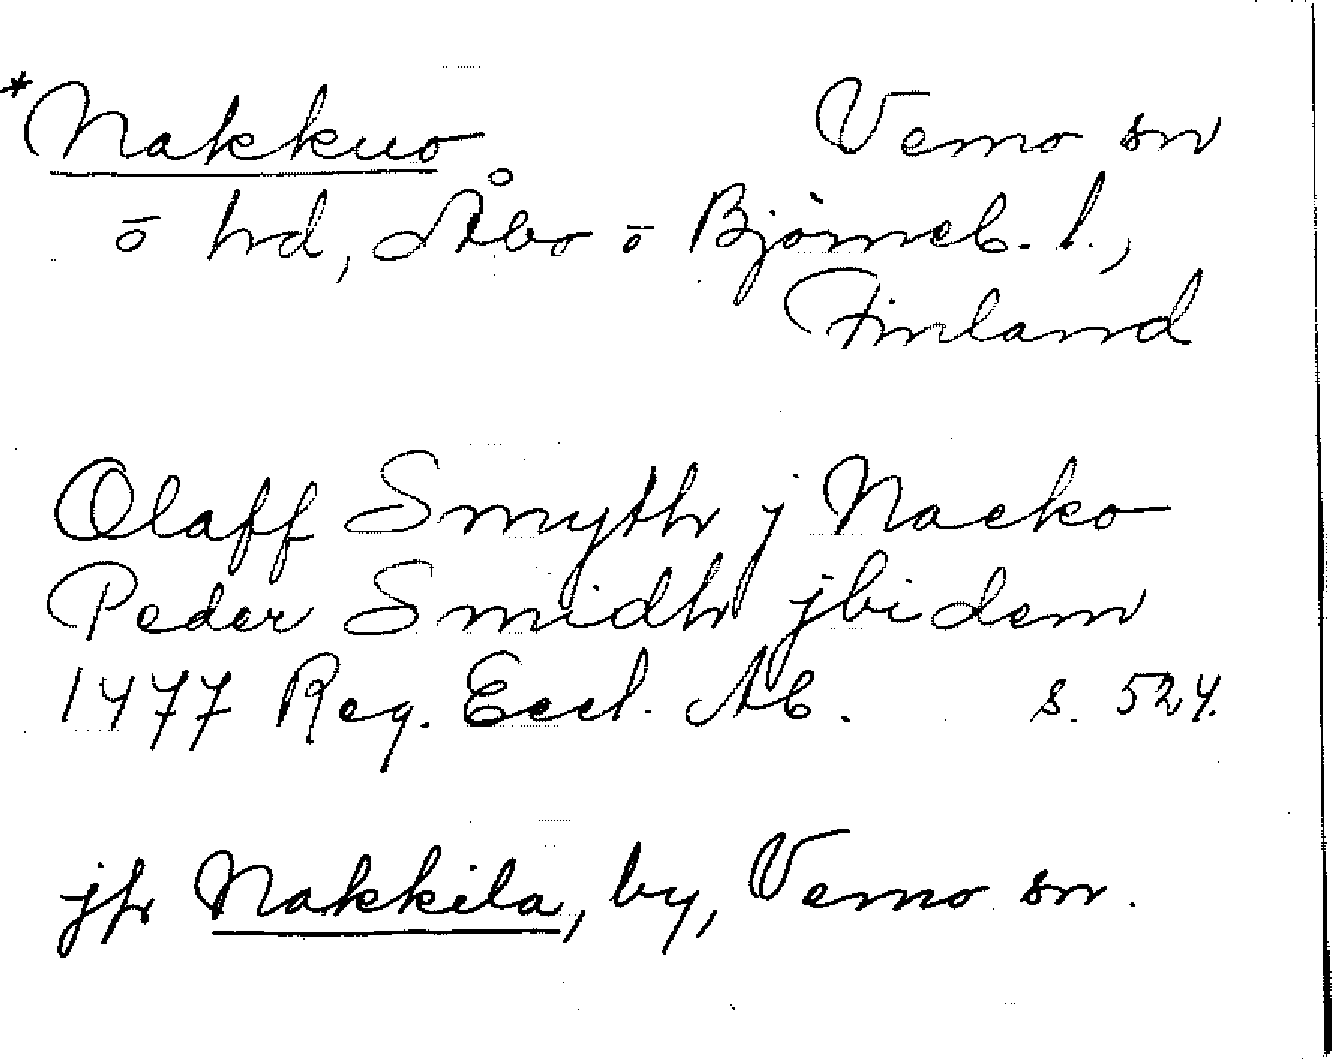 *Nakkuo Vemo sn
o hd, Åbo o Björneb. l.,
Finland
Olaff Smyth j Nacko
Peder Smidh jbidem
1477 Reg. Eccl. Ab. s. 524.
jfr Nakkila, by, Vemo sn.